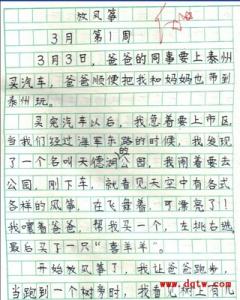 放风筝
3月 第1周
3月3日，爸爸的同事要上泰州
买汽车，爸爸顺便把我和妈妈也带到
泰州玩。
买完汽车以后，我急着要上市区
当我们经过海军东路的时候，我发现
了一个名叫天德湖的公园，我闹着要去
公园，刚下车，就看见天空中有各式
各样的风筝，在飞舞着，可漂亮了！
我嚷着爸爸，帮我买一个，左挑右选
最后买了一只“喜羊羊”。
开始放风筝了，我让爸爸跑步，
当跑到一个树多时，我看见树上有几
www.dgtw.com